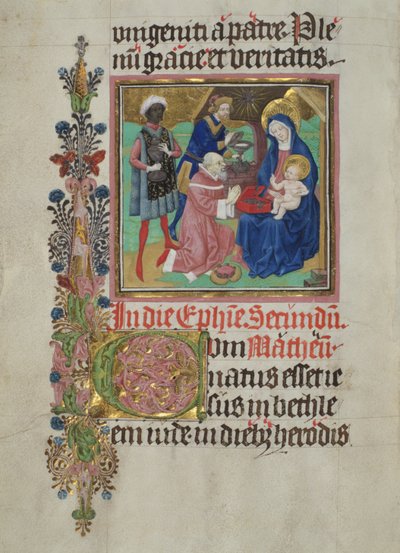 unigeniti a patre. Ple
nu͞ gracie et veritatis.
In die Eph͞ie. Secundu͞.
Cum Matheu͞.
natus esset ie
sus in bethle
em iude. in dieb; herodis